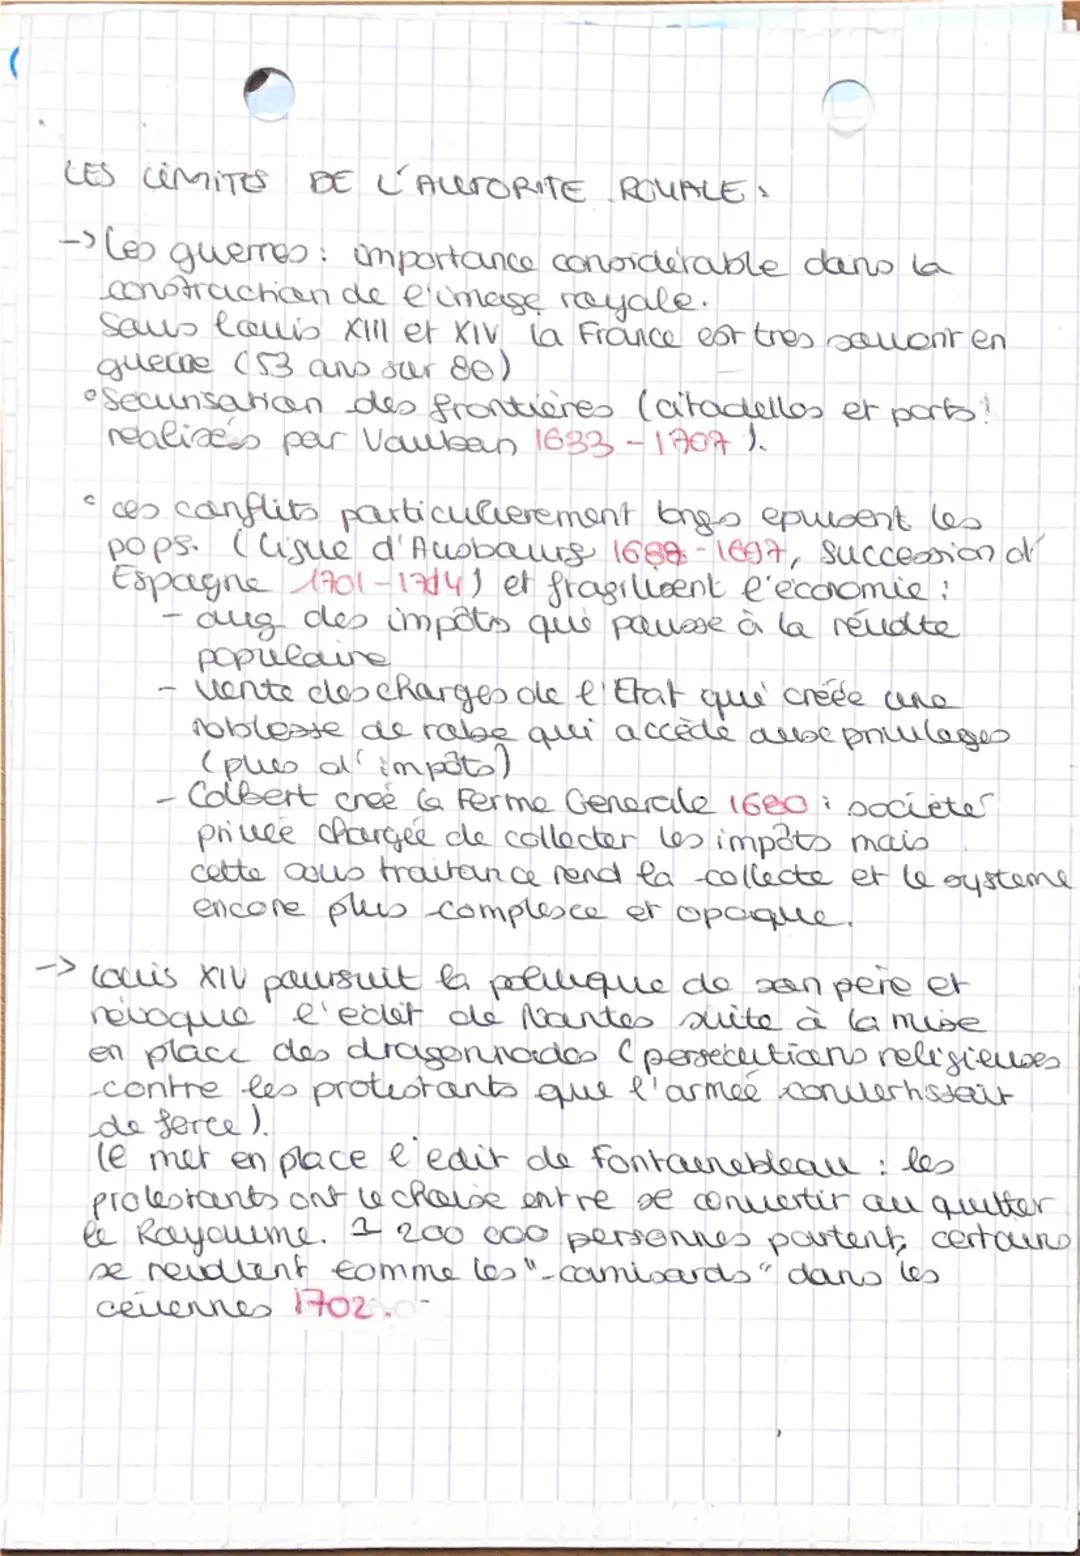 LES LIMITES DE L'AUTORITE ROYALE :
-> Les guerres : importance considérable dans la
construction de l'image royale.
Sous Louis XIII et XIV la France est tres souvent en
guerre (53 ans sur 80)
° Securisation des frontières (citadelles et ports
realisés par Vauban 1633 - 1707 ).
° ces conflits particulierement longs epuisent les
pops. (Ligue d'Ausbourg 1688 - 1697, Succession d'
Espagne 1701 - 1714) et fragilisent l'économie :
- aug des impôts qui pousse à la révolte
populaire
- Vente des charges de l'Etat qui créée une
noblesse de robe qui accède aux privileges
(plus d'impôts)
- Colbert creé la Ferme Generale 1680 : société
privée chargée de collecter les impôts mais
cette sous traitance rend la collecte et le systeme
encore plus complexe et opaque.
-> Louis XIV poursuit la politique de son père et
révoque l'édit de Nantes suite à la mise
en place des dragonnades (persecutions religieuses
contre les protestants que l'armée convertissait
de force).
Ie met en place l'edit de Fontainebleau : les
protestants ont le choix entre se convertir ou quitter
le Royaume. 200 000 personnes partent, certains
se revoltent comme les "camisards" dans les
cévennes 1702.